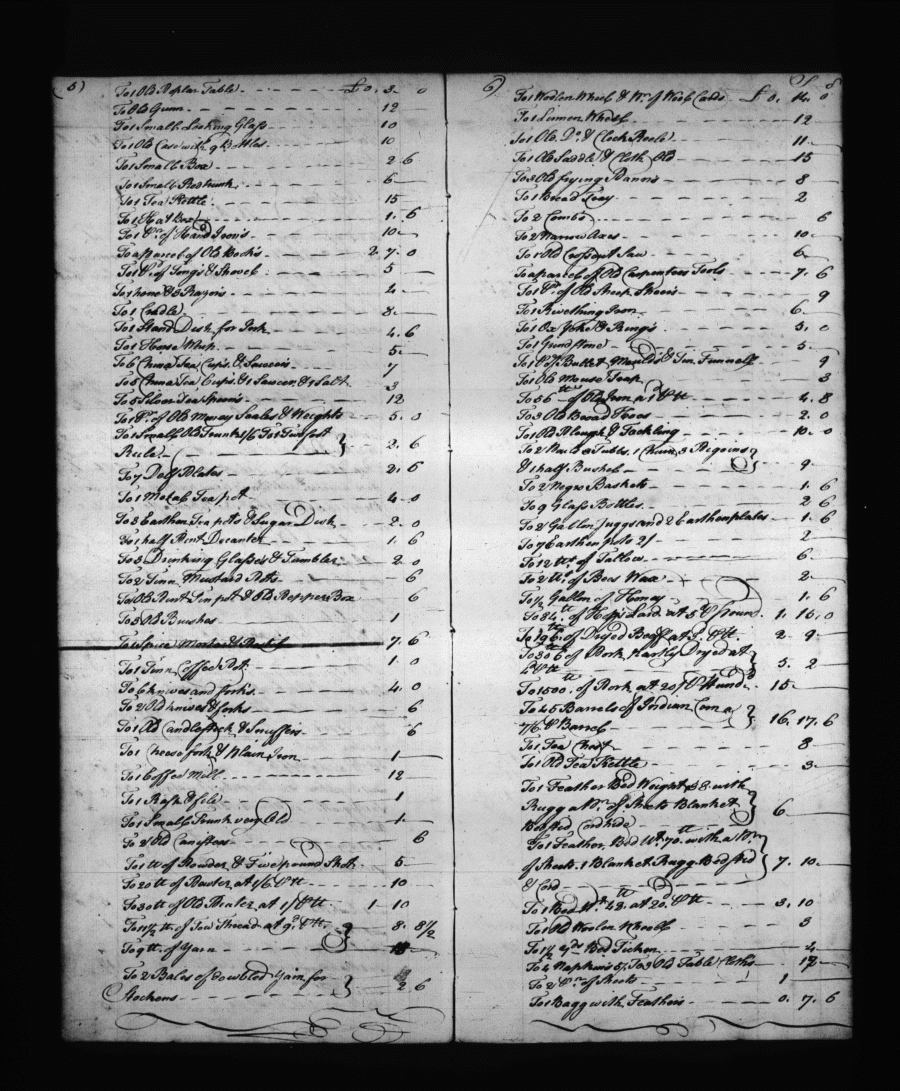 (5)
To 1 Old Poplar Table £0. 3. 0
To Old Gunn 12
To 1 Small Looking Glass 10
To 1 Old Case with 9 Bottles 10
To 1 Small Box 2 6
To 1 Small 6
To 1 Tea Kettle 15
To 1 Hat Box 1. 6
To 1 Pr. of Hand Iron's 10
To a parcel of Old Book's 2. 7. 0
To 1 Pr. of Tong's & Shovel 5
To 1 hone & 3 Razors 4
To 1 Cradle 8
To 1 Stand Desk for 4. 6
To 1 Horse Whip 5
To 6 China Tea Cup's & Saucers 7
To 5 China Tea Cup's & 1 Saucer & 1 Salt 3
To 5 Silver Tea Spoons 12
To 1 Pr. of Old Money Scales & Weights 5. 0
To 1 Small Old Trunk 1/6 To 1 Two foot
Rule } 2. 6
To 7 Delf Plates 2. 6
To 1 Metal Teapot 4. 0
To 3 Earthen Teapots & Sugar Dish 2. 0
To 1 half Pint Decanter 1. 6
To 3 Drinking Glasses & Tumbler 2. 0
To 2 Tinn Mustard Pots 6
To 1 Old Pint Tin pot & Old Pepper Box 6
To 3 Old Brushes 1
To 1 Spice Mortar & Pestil 7. 6
To 1 Tinn Coffee Pot 1. 0
To 6 knives and fork's 4. 0
To 2 Old knives & forks 6
To 1 Old Candlestick & Snuffers 6
To 1 Cheese fork & Plain Iron 1
To 1 Coffee Mill 12
To 1 Rasp & file 1
To 1 Small Trunk very Old 1
To 2 Old Canisters 6
To 1 lb of Powder & Five pound Shot 5
To 20 lb of Pewter at 1/6 Pr lb 10
To 30 lb of Old at 1/ Pr lb 1 10
To 11½ lb. of Tow Thread at 9d. Pr lb 8. 8½
To 9 lb. of Yarn
To 2 Bales of Doubled Yarn for
Stockens } 2 6
6)
To 1 Woolen Wheel & Pr. of Wool Cards £0. 14. 0
To 1 Linnen Wheel 12
To 1 Old Do. & Clock Reele 11
To 1 Old Saddle & Cloth Old 15
To 3 Old frying Pann's 8
To 1 Bread Tray 2
To 2 Combs 6
To 2 Narrow Axes 10
To 1 Old Crosscut Saw 6
To a parcel of Old Carpenters Tools 7. 6
To 1 Pr. of Old Sheep Shears 9
To 1 Iron 6
To 1 Ox Yoke & Ring's 5. 0
To 1 Grindstone 5
To 1 Pr. Bullet Moulds & Tin Funnell 9
To 1 Old Mouse Trap 3
To 56 lb of Old Iron a 1d Pr lb 4. 8
To 3 Old Broad Hoes 2. 0
To 1 Old Plough & Tackling 10. 0
To 2 Pails 3 Tubbs, 1 Churn, 3 Pigoins
& 1 half Bushel } 9
To 2 Negro Baskets 1. 6
To 9 Glass Bottles 2 6
To 2 Gallon Juggs and 2 Earthen plates 1. 6
To 7 Earthen pots 2/ 2
To 12 lb. of Tallow 6
To 2 lb. of Bees Wax 2
To ½ Gallon of Honey 1. 6
To 84 lb. of Hogs Lard at 5d Pr pound 1. 15. 0
To 196 lb of Dryed Beef at 3d. Pr lb. 2. 9
To 306 lb of Pork Hardly Dryed at
4d Pr lb } 5. 2
To 1500 lb. of Pork at 20/ Pr Hund. 15
To 45 Barrels of Indian Corn a
7/6 Pr Barrel } 16. 17. 6
To 1 Tea Chest 8
To 1 Old Tea Kettle 3
To 1 Feather Bed Weight 58 with
Rugg a Pr. of Sheets Blanket
Bedsted Cord hide } 6
To 1 Feather Bed Wt. 70 lb with a Pr.
of Sheets 1 Blanket Rugg Bedsted
& Cord } 7. 10
To 1 Bed Wt. 42 lb. at 20d. Pr lb 3. 10
To 1 Old Woolen Wheel 3
To 1½ Yds. Bed Ticken 4
To 4 Napkins 5/. To 3 Old Table Cloths 12
To 2 Pr. of Sheets 1
To 1 Bagg with Feathers 0. 7. 6